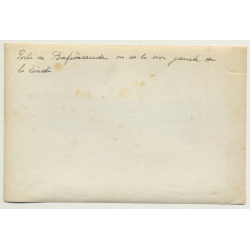 Poste de Bafwasende vu de la rive gauche de
la Lindi